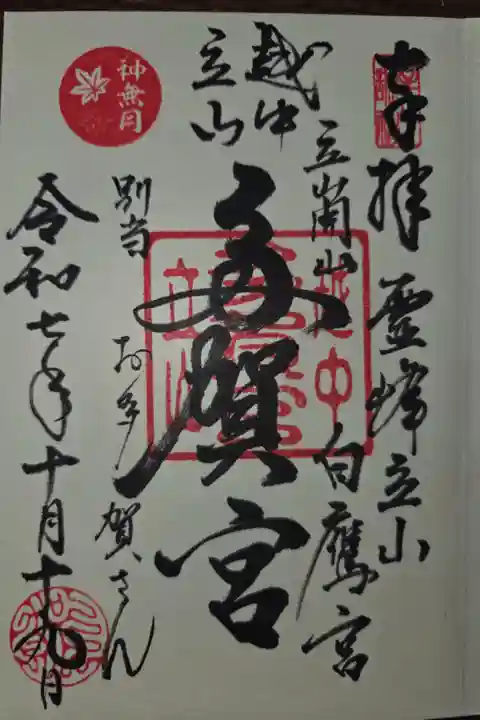 奉拝 霊峰立山
立山開山 白鷹宮
越中
立山
多賀宮
別当 お多賀さん
令和七年十月十九日
神無月
越中